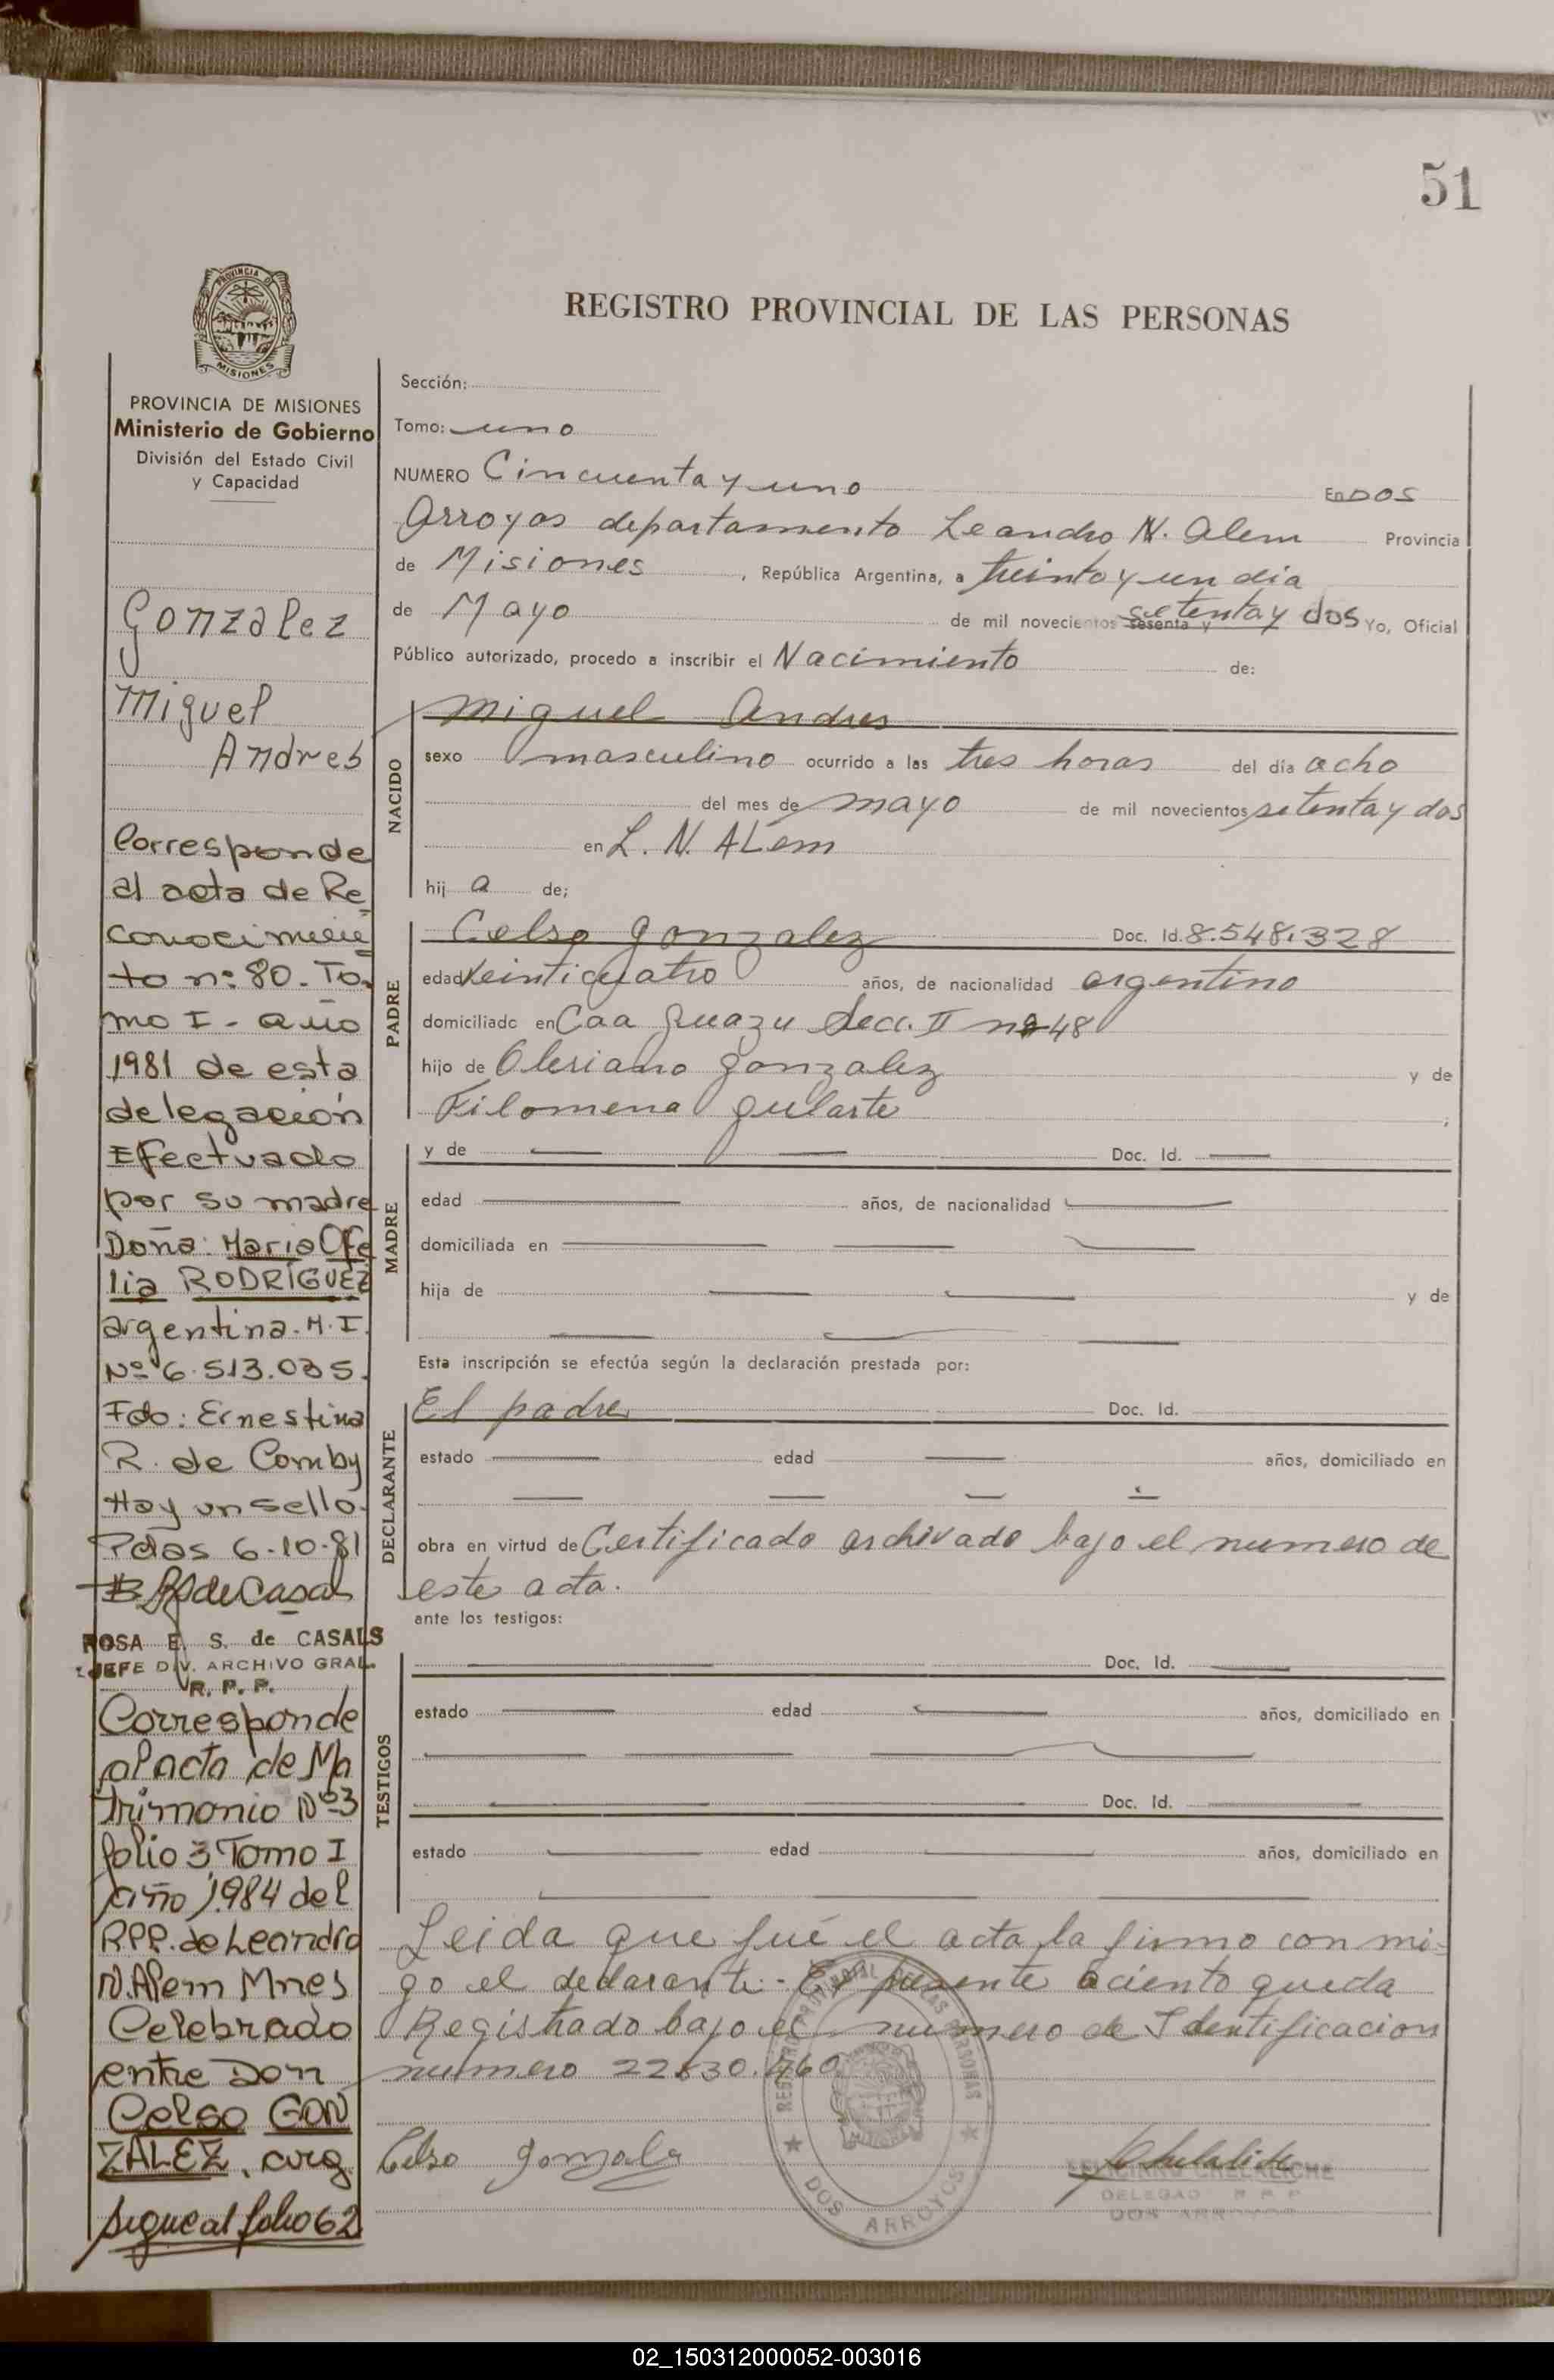 51
PROVINCIA DE
MISIONES
PROVINCIA DE MISIONES
Ministerio de Gobierno
División del Estado Civil
y Capacidad
Gonzalez
Miguel
Andres
Corresponde
al acta de Re
conocimien
to nº: 80. To
mo I - año
1981 de esta
delegación
Efectuado
por su madre
Doña: Maria Ofe
lia RODRÍGUEZ
argentina. M. I.
Nº 6.513.035.
Fdo: Ernestina
R. de Comby
Hay un sello.
Pdas 6-10-81
ROSA E. S. de CASALS
JEFE DIV. ARCHIVO GRAL.
R. P. P.
Corresponde
al acta de Ma
trimonio Nº 3
folio 3 Tomo I
año 1984 del
RPP. de Leandro
N. Alem Mnes
Celebrado
entre Don
Celso GON
ZALEZ, arg
sigue al folio 62
REGISTRO PROVINCIAL DE LAS PERSONAS
Sección:
Tomo: uno
NUMERO Cincuenta y uno En DOS
Arroyos departamento Leandro N. Alem Provincia
de Misiones, República Argentina, a treinta y un dia
de Mayo de mil novecientos sesenta y setenta y dos Yo, Oficial
Público autorizado, procedo a inscribir el Nacimiento de:
NACIDO
Miguel Andres
sexo masculino ocurrido a las tres horas del día ocho
del mes de mayo de mil novecientos setenta y dos
en L. N. ALem
hij a de;
PADRE
Celso gonzalez Doc. Id. 8.548.328
edad Veinticuatro años, de nacionalidad argentino
domiciliado en Caa Guazu Secc. II nº 48
hijo de Oleriano gonzalez y de
Filomena gularte ;
MADRE
y de Doc. Id.
edad años, de nacionalidad
domiciliada en
hija de y de
Esta inscripción se efectúa según la declaración prestada por:
DECLARANTE
El padre Doc. Id.
estado edad años, domiciliado en
obra en virtud de Certificado archivado bajo el numero de
este acta.
ante los testigos:
TESTIGOS
Doc. Id.
estado edad años, domiciliado en
Doc. Id.
estado edad años, domiciliado en
Leida que fué el acta la firma con mi-
go el declarante.- El presente aciento queda
Registrado bajo el numero de Identificacion
numero 22.530.460
Celso Gonzalez
REGISTRO PROVINCIAL DE LAS PERSONAS
DOS ARROYOS
CHELALICHE
DELEGAD R P P
DOS ARROYOS
02_150312000052-003016